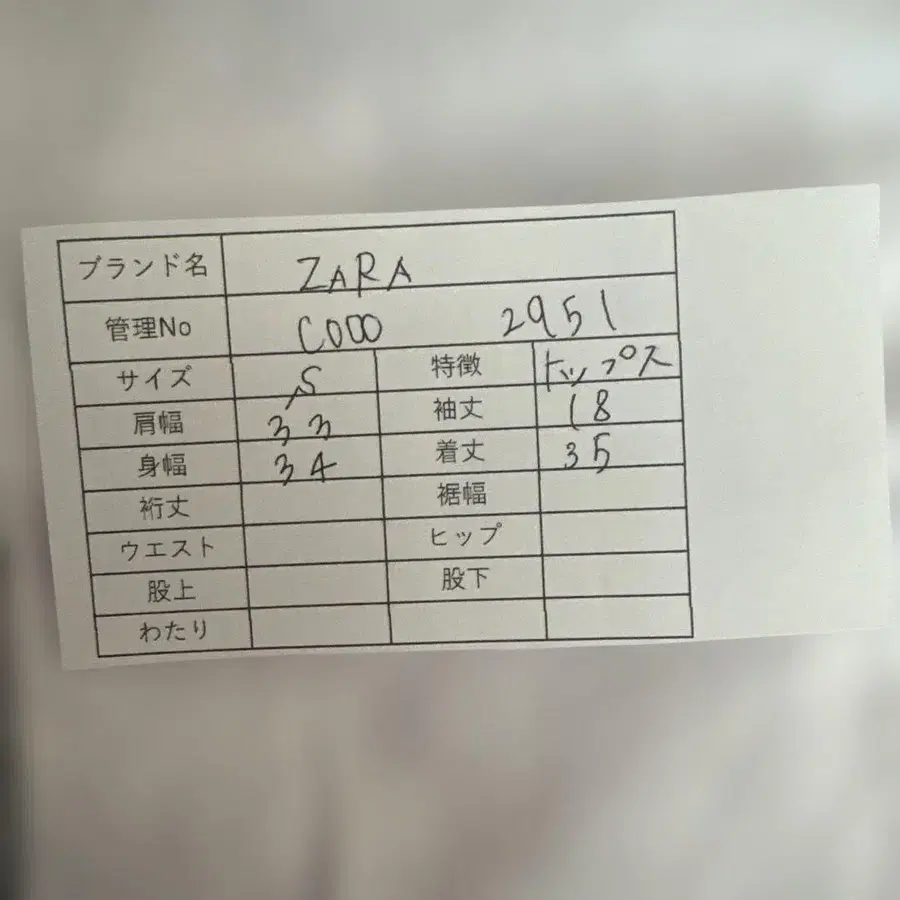 ブランド名 ZARA
管理No C000 2951
サイズ S 特徴 トップス
肩幅 33 袖丈 18
身幅 34 着丈 35
裄丈 裾幅
ウエスト ヒップ
股上 股下
わたり